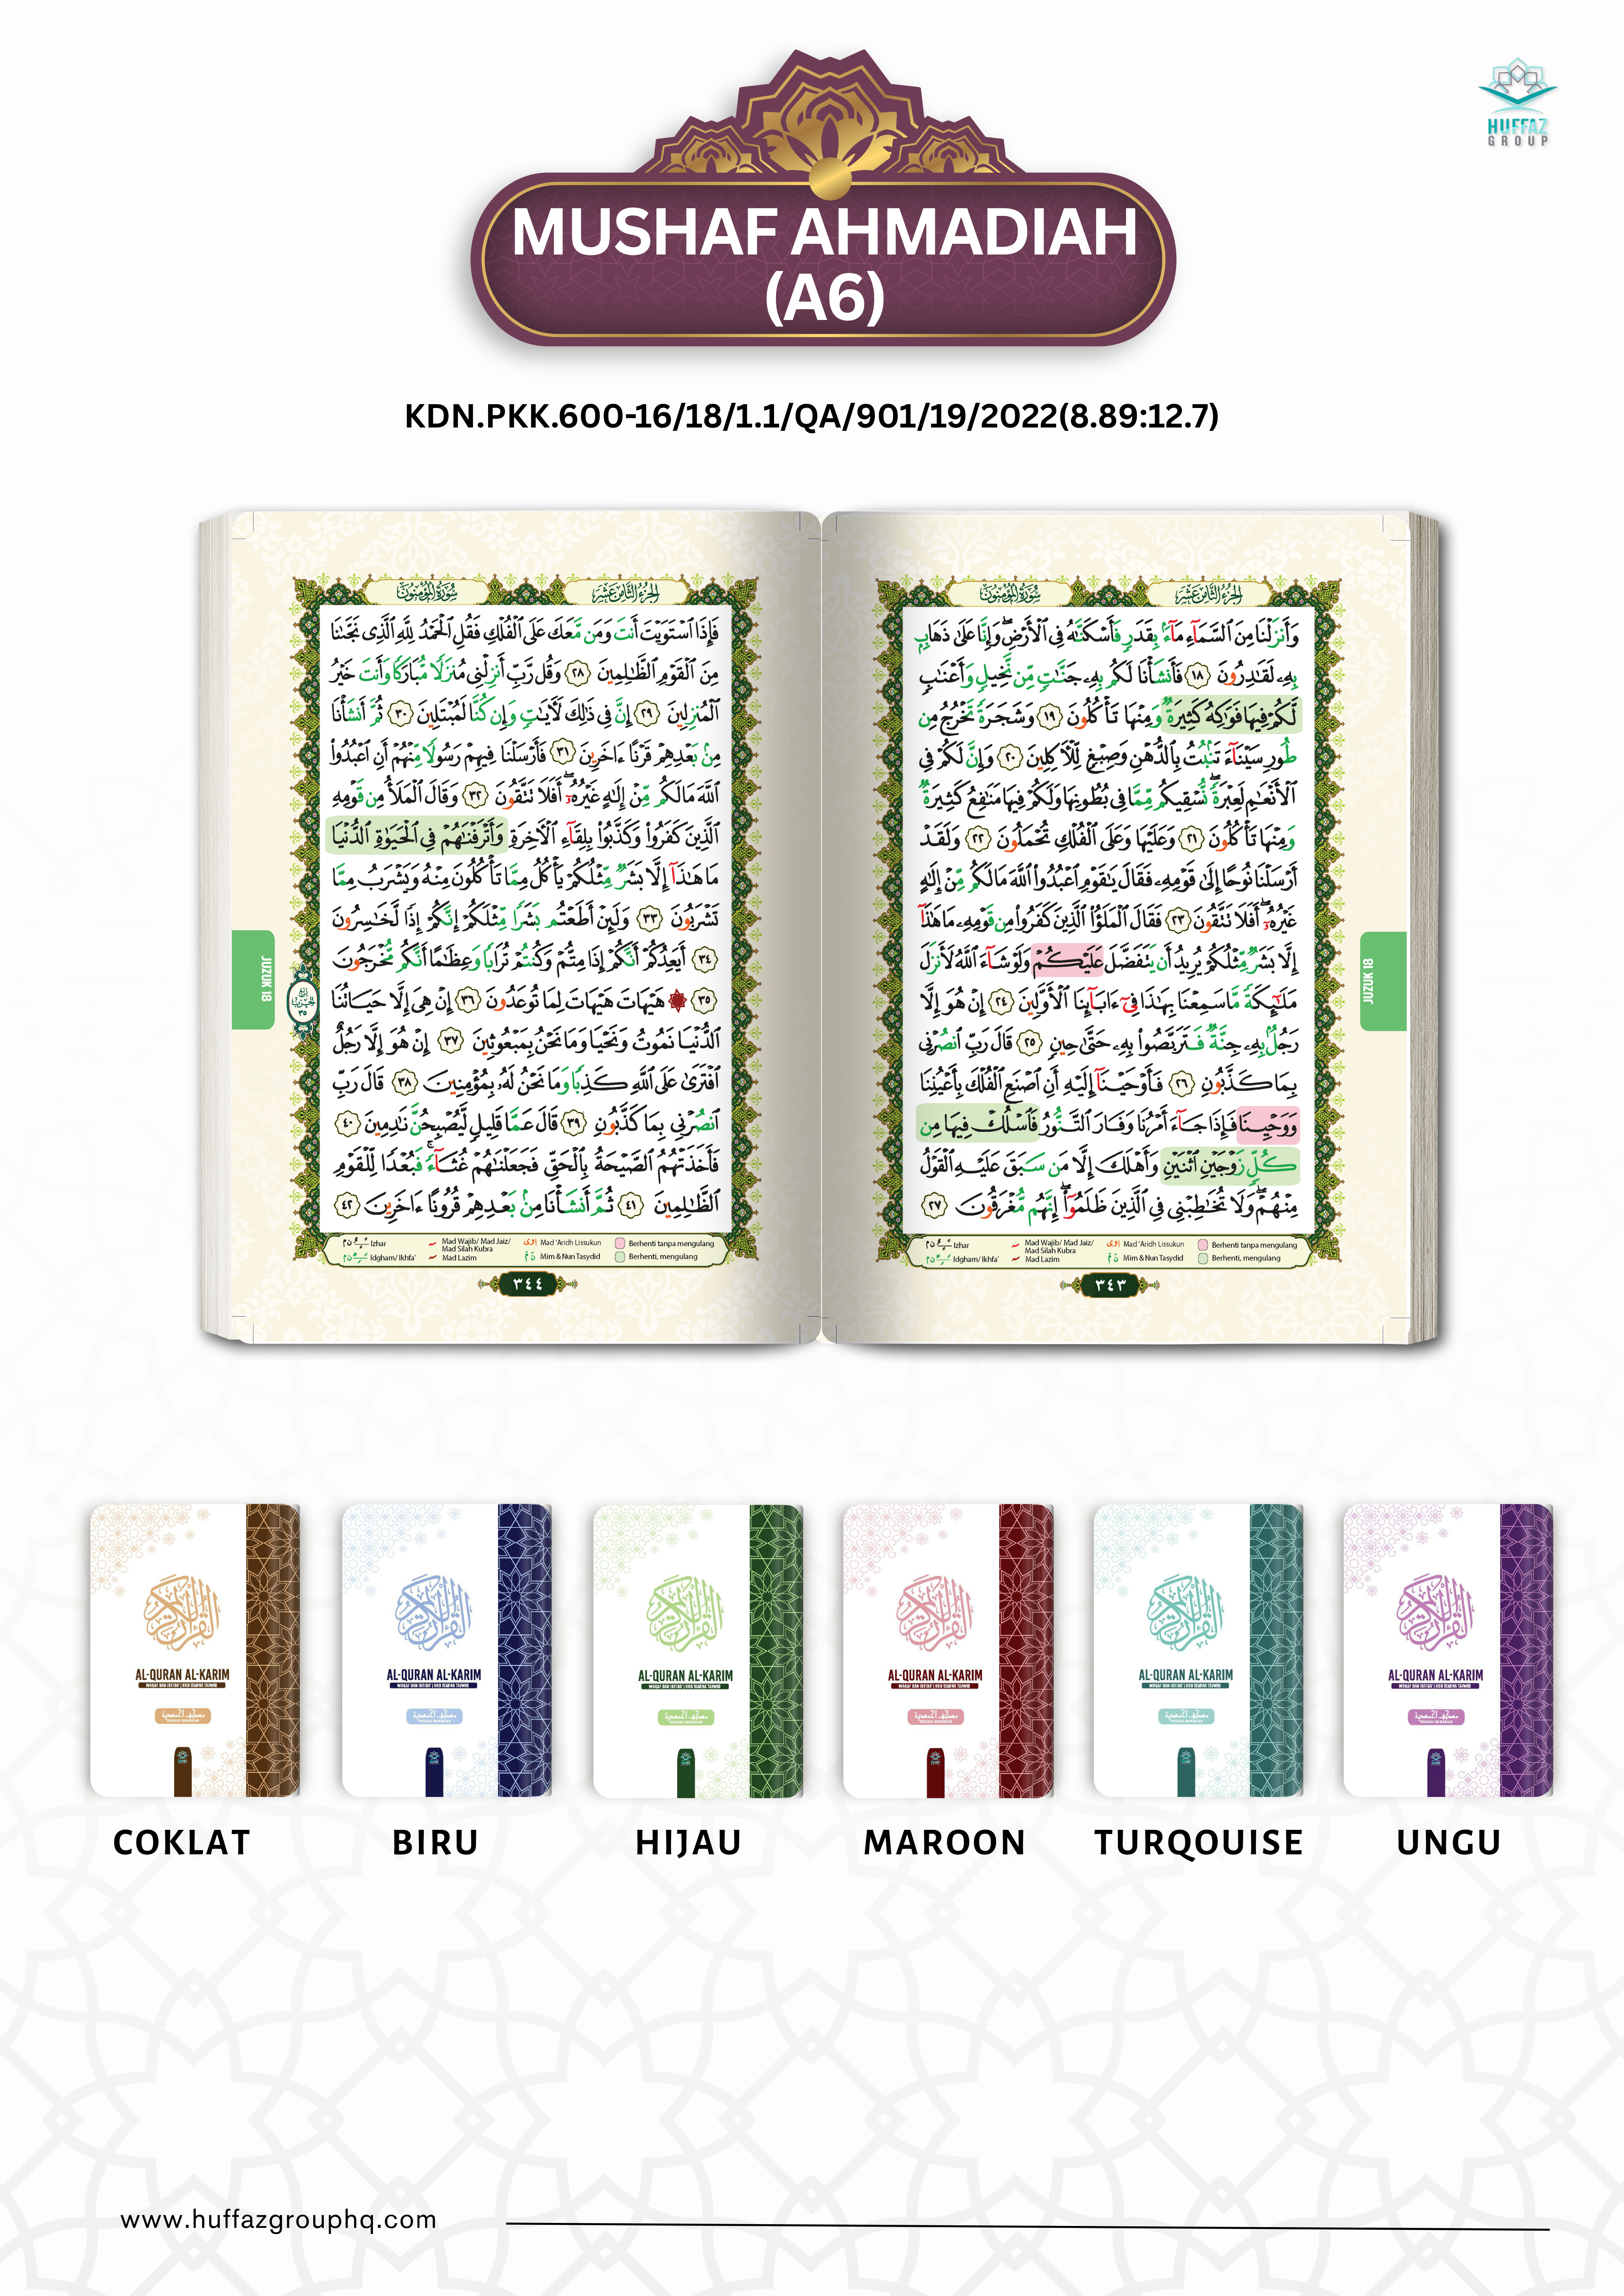 HUFFAZ
GROUP
MUSHAF AHMADIAH
(A6)
KDN.PKK.600-16/18/1.1/QA/901/19/2022(8.89:12.7)
الجزء الثامن عشر
سورة المؤمنون
وَأَنزَلْنَا مِنَ ٱلسَّمَآءِ مَآءًۢ بِقَدَرٍ فَأَسْكَنَّٰهُ فِى ٱلْأَرْضِ ۖ وَإِنَّا عَلَىٰ ذَهَابٍۭ
بِهِۦ لَقَٰدِرُونَ ١٨ فَأَنشَأْنَا لَكُم بِهِۦ جَنَّٰتٍ مِّن نَّخِيلٍ وَأَعْنَٰبٍ
لَّكُمْ فِيهَا فَوَٰكِهُ كَثِيرَةٌ وَمِنْهَا تَأْكُلُونَ ١٩ وَشَجَرَةً تَخْرُجُ مِن
طُورِ سَيْنَآءَ تَنۢبُتُ بِٱلدُّهْنِ وَصِبْغٍ لِّلْـَٔاكِلِينَ ٢٠ وَإِنَّ لَكُمْ فِى
ٱلْأَنْعَٰمِ لَعِبْرَةً ۖ نُّسْقِيكُم مِّمَّا فِى بُطُونِهَا وَلَكُمْ فِيهَا مَنَٰفِعُ كَثِيرَةٌ
وَمِنْهَا تَأْكُلُونَ ٢١ وَعَلَيْهَا وَعَلَى ٱلْفُلْكِ تُحْمَلُونَ ٢٢ وَلَقَدْ
أَرْسَلْنَا نُوحًا إِلَىٰ قَوْمِهِۦ فَقَالَ يَٰقَوْمِ ٱعْبُدُوا۟ ٱللَّهَ مَا لَكُم مِّنْ إِلَٰهٍ
غَيْرُهُۥٓ ۖ أَفَلَا تَتَّقُونَ ٢٣ فَقَالَ ٱلْمَلَؤُا۟ ٱلَّذِينَ كَفَرُوا۟ مِن قَوْمِهِۦ مَا هَٰذَآ
إِلَّا بَشَرٌ مِّثْلُكُمْ يُرِيدُ أَن يَتَفَضَّلَ عَلَيْكُمْ وَلَوْ شَآءَ ٱللَّهُ لَأَنزَلَ
مَلَٰٓئِكَةً مَّا سَمِعْنَا بِهَٰذَا فِىٓ ءَابَآئِنَا ٱلْأَوَّلِينَ ٢٤ إِنْ هُوَ إِلَّا
رَجُلٌۢ بِهِۦ جِنَّةٌ فَتَرَبَّصُوا۟ بِهِۦ حَتَّىٰ حِينٍ ٢٥ قَالَ رَبِّ ٱنصُرْنِى
بِمَا كَذَّبُونِ ٢٦ فَأَوْحَيْنَآ إِلَيْهِ أَنِ ٱصْنَعِ ٱلْفُلْكَ بِأَعْيُنِنَا
وَوَحْيِنَا فَإِذَا جَآءَ أَمْرُنَا وَفَارَ ٱلتَّنُّورُ فَٱسْلُكْ فِيهَا مِن
كُلٍّ زَوْجَيْنِ ٱثْنَيْنِ وَأَهْلَكَ إِلَّا مَن سَبَقَ عَلَيْهِ ٱلْقَوْلُ
مِنْهُمْ ۖ وَلَا تُخَٰطِبْنِى فِى ٱلَّذِينَ ظَلَمُوٓا۟ ۖ إِنَّهُم مُّغْرَقُونَ ٢٧
Izhar
Idgham/ Ikhfa'
Mad Wajib/ Mad Jaiz/
Mad Silah Kubra
Mad Lazim
Mad 'Aridh Lissukun
Mim & Nun Tasydid
Berhenti tanpa mengulang
Berhenti, mengulang
٣٤٣
JUZUK 18
الجزء الثامن عشر
سورة المؤمنون
فَإِذَا ٱسْتَوَيْتَ أَنتَ وَمَن مَّعَكَ عَلَى ٱلْفُلْكِ فَقُلِ ٱلْحَمْدُ لِلَّهِ ٱلَّذِى نَجَّىٰنَا
مِنَ ٱلْقَوْمِ ٱلظَّٰلِمِينَ ٢٨ وَقُل رَّبِّ أَنزِلْنِى مُنزَلًا مُّبَارَكًا وَأَنتَ خَيْرُ
ٱلْمُنزِلِينَ ٢٩ إِنَّ فِى ذَٰلِكَ لَـَٔايَٰتٍ وَإِن كُنَّا لَمُبْتَلِينَ ٣٠ ثُمَّ أَنشَأْنَا
مِنۢ بَعْدِهِمْ قَرْنًا ءَاخَرِينَ ٣١ فَأَرْسَلْنَا فِيهِمْ رَسُولًا مِّنْهُمْ أَنِ ٱعْبُدُوا۟
ٱللَّهَ مَا لَكُم مِّنْ إِلَٰهٍ غَيْرُهُۥٓ ۖ أَفَلَا تَتَّقُونَ ٣٢ وَقَالَ ٱلْمَلَأُ مِن قَوْمِهِ
ٱلَّذِينَ كَفَرُوا۟ وَكَذَّبُوا۟ بِلِقَآءِ ٱلْـَٔاخِرَةِ وَأَتْرَفْنَٰهُمْ فِى ٱلْحَيَوٰةِ ٱلدُّنْيَا
مَا هَٰذَآ إِلَّا بَشَرٌ مِّثْلُكُمْ يَأْكُلُ مِمَّا تَأْكُلُونَ مِنْهُ وَيَشْرَبُ مِمَّا
تَشْرَبُونَ ٣٣ وَلَئِنْ أَطَعْتُم بَشَرًا مِّثْلَكُمْ إِنَّكُمْ إِذًا لَّخَٰسِرُونَ
٣٤ أَيَعِدُكُمْ أَنَّكُمْ إِذَا مِتُّمْ وَكُنتُمْ تُرَابًا وَعِظَٰمًا أَنَّكُم مُّخْرَجُونَ
٣٥ ۞ هَيْهَاتَ هَيْهَاتَ لِمَا تُوعَدُونَ ٣٦ إِنْ هِىَ إِلَّا حَيَاتُنَا
ٱلدُّنْيَا نَمُوتُ وَنَحْيَا وَمَا نَحْنُ بِمَبْعُوثِينَ ٣٧ إِنْ هُوَ إِلَّا رَجُلٌ
ٱفْتَرَىٰ عَلَى ٱللَّهِ كَذِبًا وَمَا نَحْنُ لَهُۥ بِمُؤْمِنِينَ ٣٨ قَالَ رَبِّ
ٱنصُرْنِى بِمَا كَذَّبُونِ ٣٩ قَالَ عَمَّا قَلِيلٍ لَّيُصْبِحُنَّ نَٰدِمِينَ ٤٠
فَأَخَذَتْهُمُ ٱلصَّيْحَةُ بِٱلْحَقِّ فَجَعَلْنَٰهُمْ غُثَآءً ۚ فَبُعْدًا لِّلْقَوْمِ
ٱلظَّٰلِمِينَ ٤١ ثُمَّ أَنشَأْنَا مِنۢ بَعْدِهِمْ قُرُونًا ءَاخَرِينَ ٤٢
Izhar
Idgham/ Ikhfa'
Mad Wajib/ Mad Jaiz/
Mad Silah Kubra
Mad Lazim
Mad 'Aridh Lissukun
Mim & Nun Tasydid
Berhenti tanpa mengulang
Berhenti, mengulang
٣٤٤
JUZUK 18
AL-QURAN AL-KARIM
AL-QURAN AL-KARIM
AL-QURAN AL-KARIM
AL-QURAN AL-KARIM
AL-QURAN AL-KARIM
AL-QURAN AL-KARIM
COKLAT
BIRU
HIJAU
MAROON
TURQOUISE
UNGU
www.huffazgrouphq.com